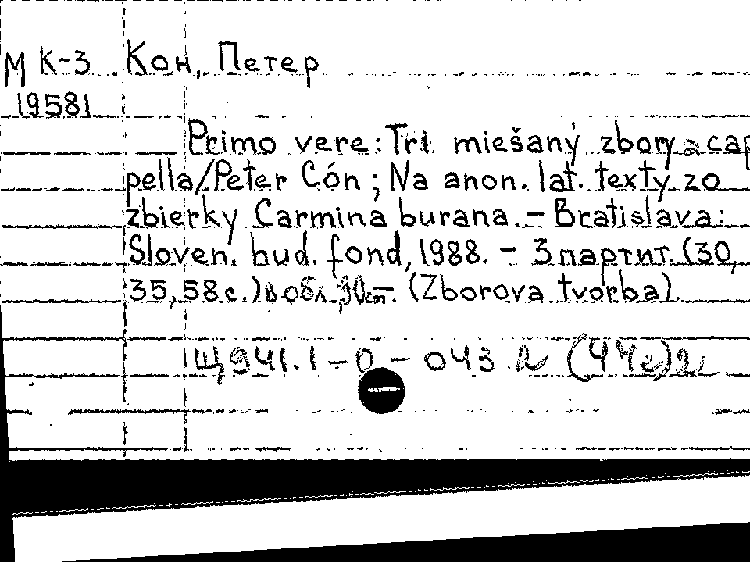 М К-3 Кон, Петер
19581
Primo vere: Tri miešaný zbory a cap
pella/Peter Cón; Na anon. lat. texty zo
zbierky Carmina burana. – Bratislava:
Sloven. hud. fond, 1988. – 3 партит. (30,
35, 58 с.) в обл. 30 cm. (Zborova tvorba)
Щ941.1-0-043